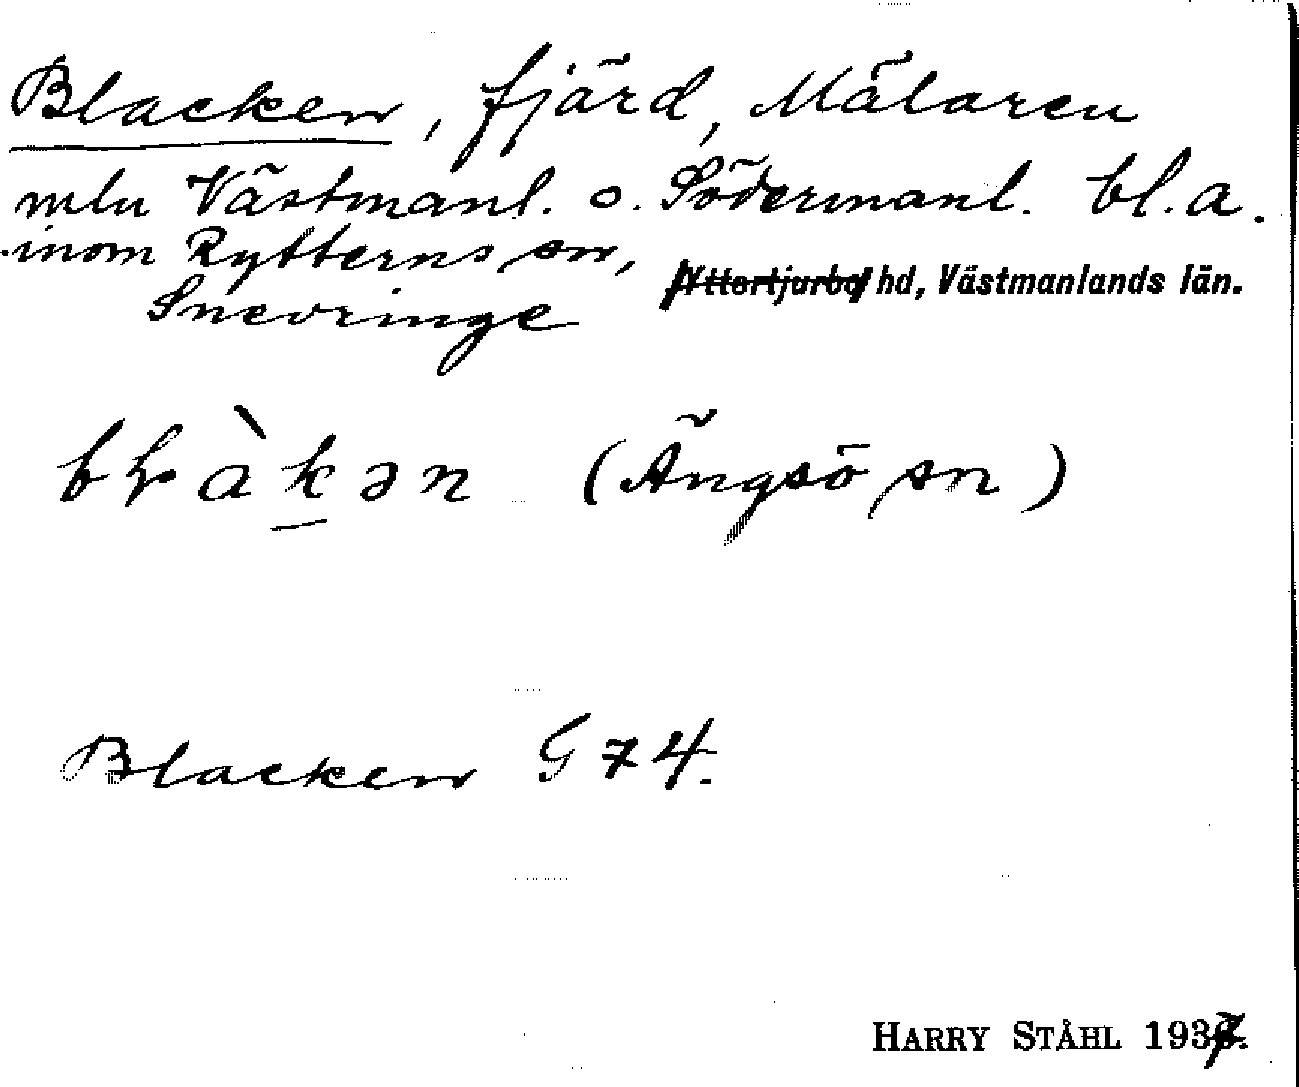 Blacken, fjärd, Mälaren
mln Västmanl. o. Södermanl. bl.a.
inom Rytterns sn,
Snevringe hd, Västmanlands län.
blàkən (Ängsö sn)
Blacken G 74.
HARRY STÅHL 1937.